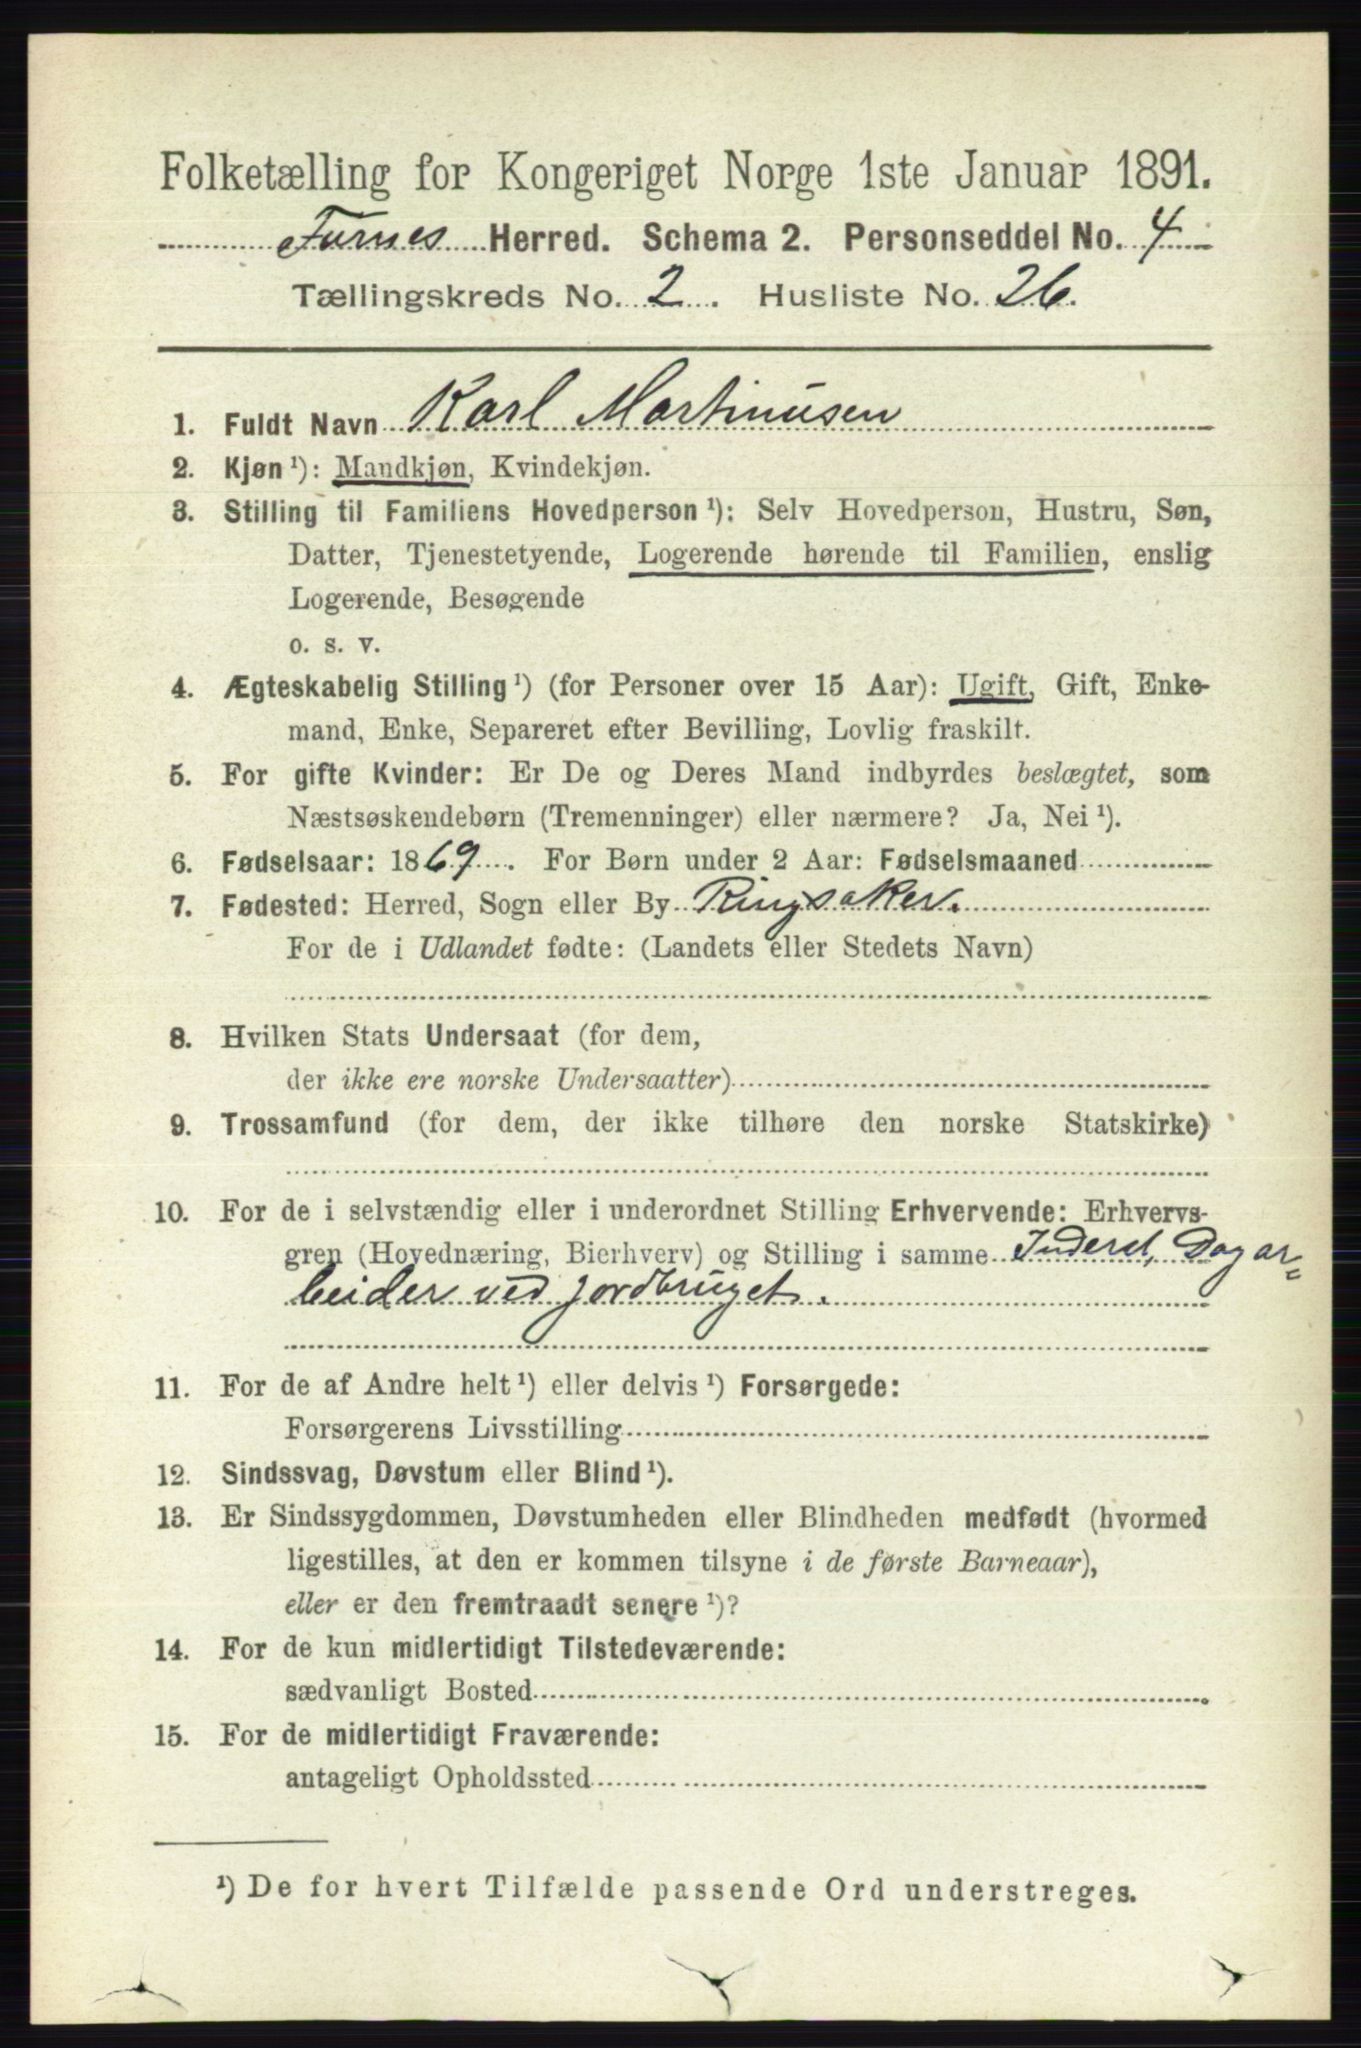 Folketælling for Kongeriget Norge 1ste Januar 1891.
Furnes Herred. Schema 2. Personseddel No. 4
Tællingskreds No. 2. Husliste No. 26.
1. Fuldt Navn Karl Martinusen
2. Kjøn ¹): Mandkjøn, Kvindekjøn.
3. Stilling til Familiens Hovedperson ¹): Selv Hovedperson, Hustru, Søn,
Datter, Tjenestetyende, Logerende hørende til Familien, enslig
Logerende, Besøgende
o. s. v.
4. Ægteskabelig Stilling ¹) (for Personer over 15 Aar): Ugift, Gift, Enke-
mand, Enke, Separeret efter Bevilling, Lovlig fraskilt.
5. For gifte Kvinder: Er De og Deres Mand indbyrdes beslægtet, som
Næstsøskendebørn (Tremenninger) eller nærmere? Ja, Nei ¹).
6. Fødselsaar: 1869. For Børn under 2 Aar: Fødselsmaaned
7. Fødested: Herred, Sogn eller By Ringsaker.
For de i Udlandet fødte: (Landets eller Stedets Navn)
8. Hvilken Stats Undersaat (for dem,
der ikke ere norske Undersaatter)
9. Trossamfund (for dem, der ikke tilhøre den norske Statskirke)
10. For de i selvstændig eller i underordnet Stilling Erhvervende: Erhvervs-
gren (Hovednæring, Bierhverv) og Stilling i samme Inderst, Dagar=
beider ved Jordbruget.
11. For de af Andre helt ¹) eller delvis ¹) Forsørgede:
Forsørgerens Livsstilling
12. Sindssvag, Døvstum eller Blind ¹).
13. Er Sindssygdommen, Døvstumheden eller Blindheden medfødt (hvormed
ligestilles, at den er kommen tilsyne i de første Barneaar),
eller er den fremtraadt senere ¹)?
14. For de kun midlertidigt Tilstedeværende:
sædvanligt Bosted
15. For de midlertidigt Fraværende:
antageligt Opholdssted
¹) De for hvert Tilfælde passende Ord understreges.